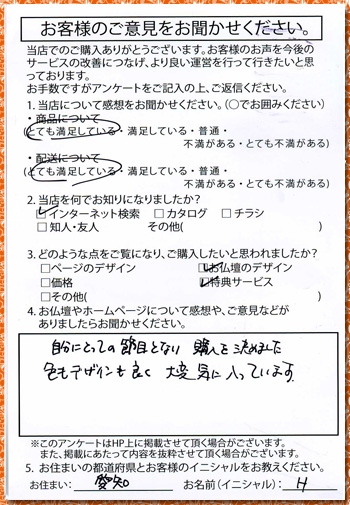 お客様のご意見をお聞かせください。
当店でのご購入ありがとうございます。お客様のお声を今後の
サービスの改善につなげ、より良い運営を行って行きたいと思
っております。
お手数ですがアンケートをご記入の上、ご返信ください。
1. 当店について感想をお聞かせください。(○でお囲みください)
・商品について
(とても満足している・満足している・普通・
不満がある・とても不満がある)
・配送について
(とても満足している・満足している・普通・
不満がある・とても不満がある)
2. 当店を何でお知りになりましたか?
☑インターネット検索 □カタログ □チラシ
□知人・友人 その他( )
3. どのような点をご覧になり、ご購入したいと思われましたか?
□ページのデザイン ☑お仏壇のデザイン
□価格 ☑特典サービス
□その他( )
4. お仏壇やホームページについて感想や、ご意見などが
ありましたらお聞かせください。
自分にとっての節目とない 購入を決めました
色もデザインも良く 大変気に入っています
※このアンケートはHP上に掲載させて頂く場合がございます。
また、掲載にあたって内容を抜粋させて頂く場合がございます。
5. お住まいの都道府県とお客様のイニシャルをお教えください。
お住まい: 愛知 お名前(イニシャル): H